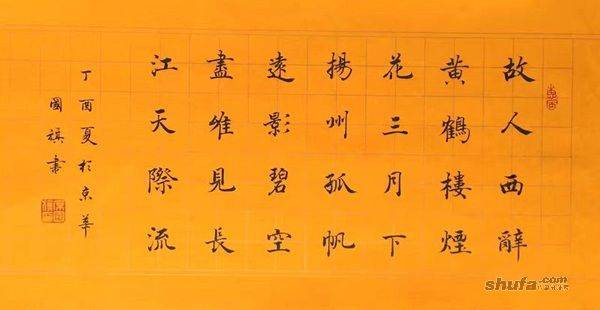 故人西辭
黃鶴樓煙
花三月下
揚州孤帆
遠影碧空
盡唯見長
江天際流
丁酉夏於京華
國旗書
shufa.com